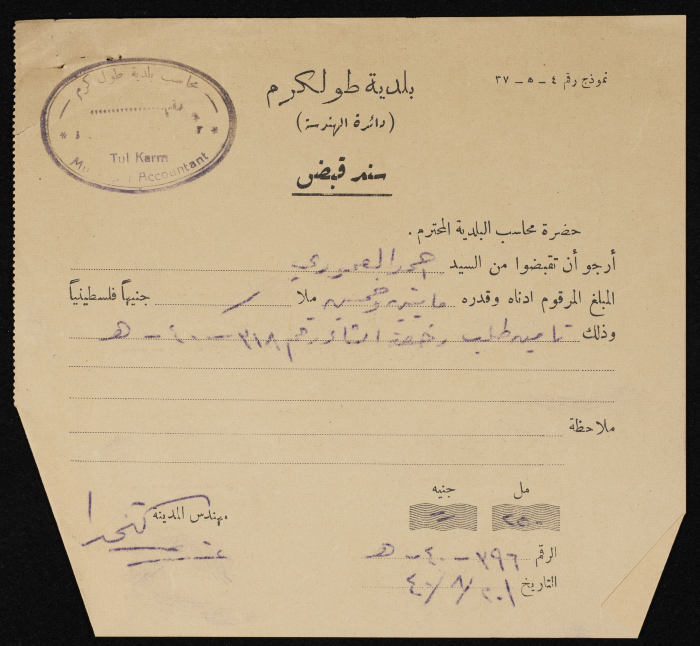 نموذج رقم ٤ - ٥ - ٣٧
محاسب بلدية طول كرم
رقم
Tul Karm
Accountant
بلدية طولكرم
(دائرة الهندسة)
سند قبض
حضرة محاسب البلدية المحترم .
أرجو أن تقبضوا من السيد احمد
المبلغ المرقوم ادناه وقدره مايتين وخمسين ملا جنيهاً فلسطينياً
وذلك تامين طلب رخصة انشاء رقم ٣١٨ - ٤٠ - هـ
ملاحظة
مل جنيه
٢٥٠
مهندس المدينة
الرقم ٧٩٦ - ٤٠ - هـ
التاريخ ٢٠/٨/٤٠